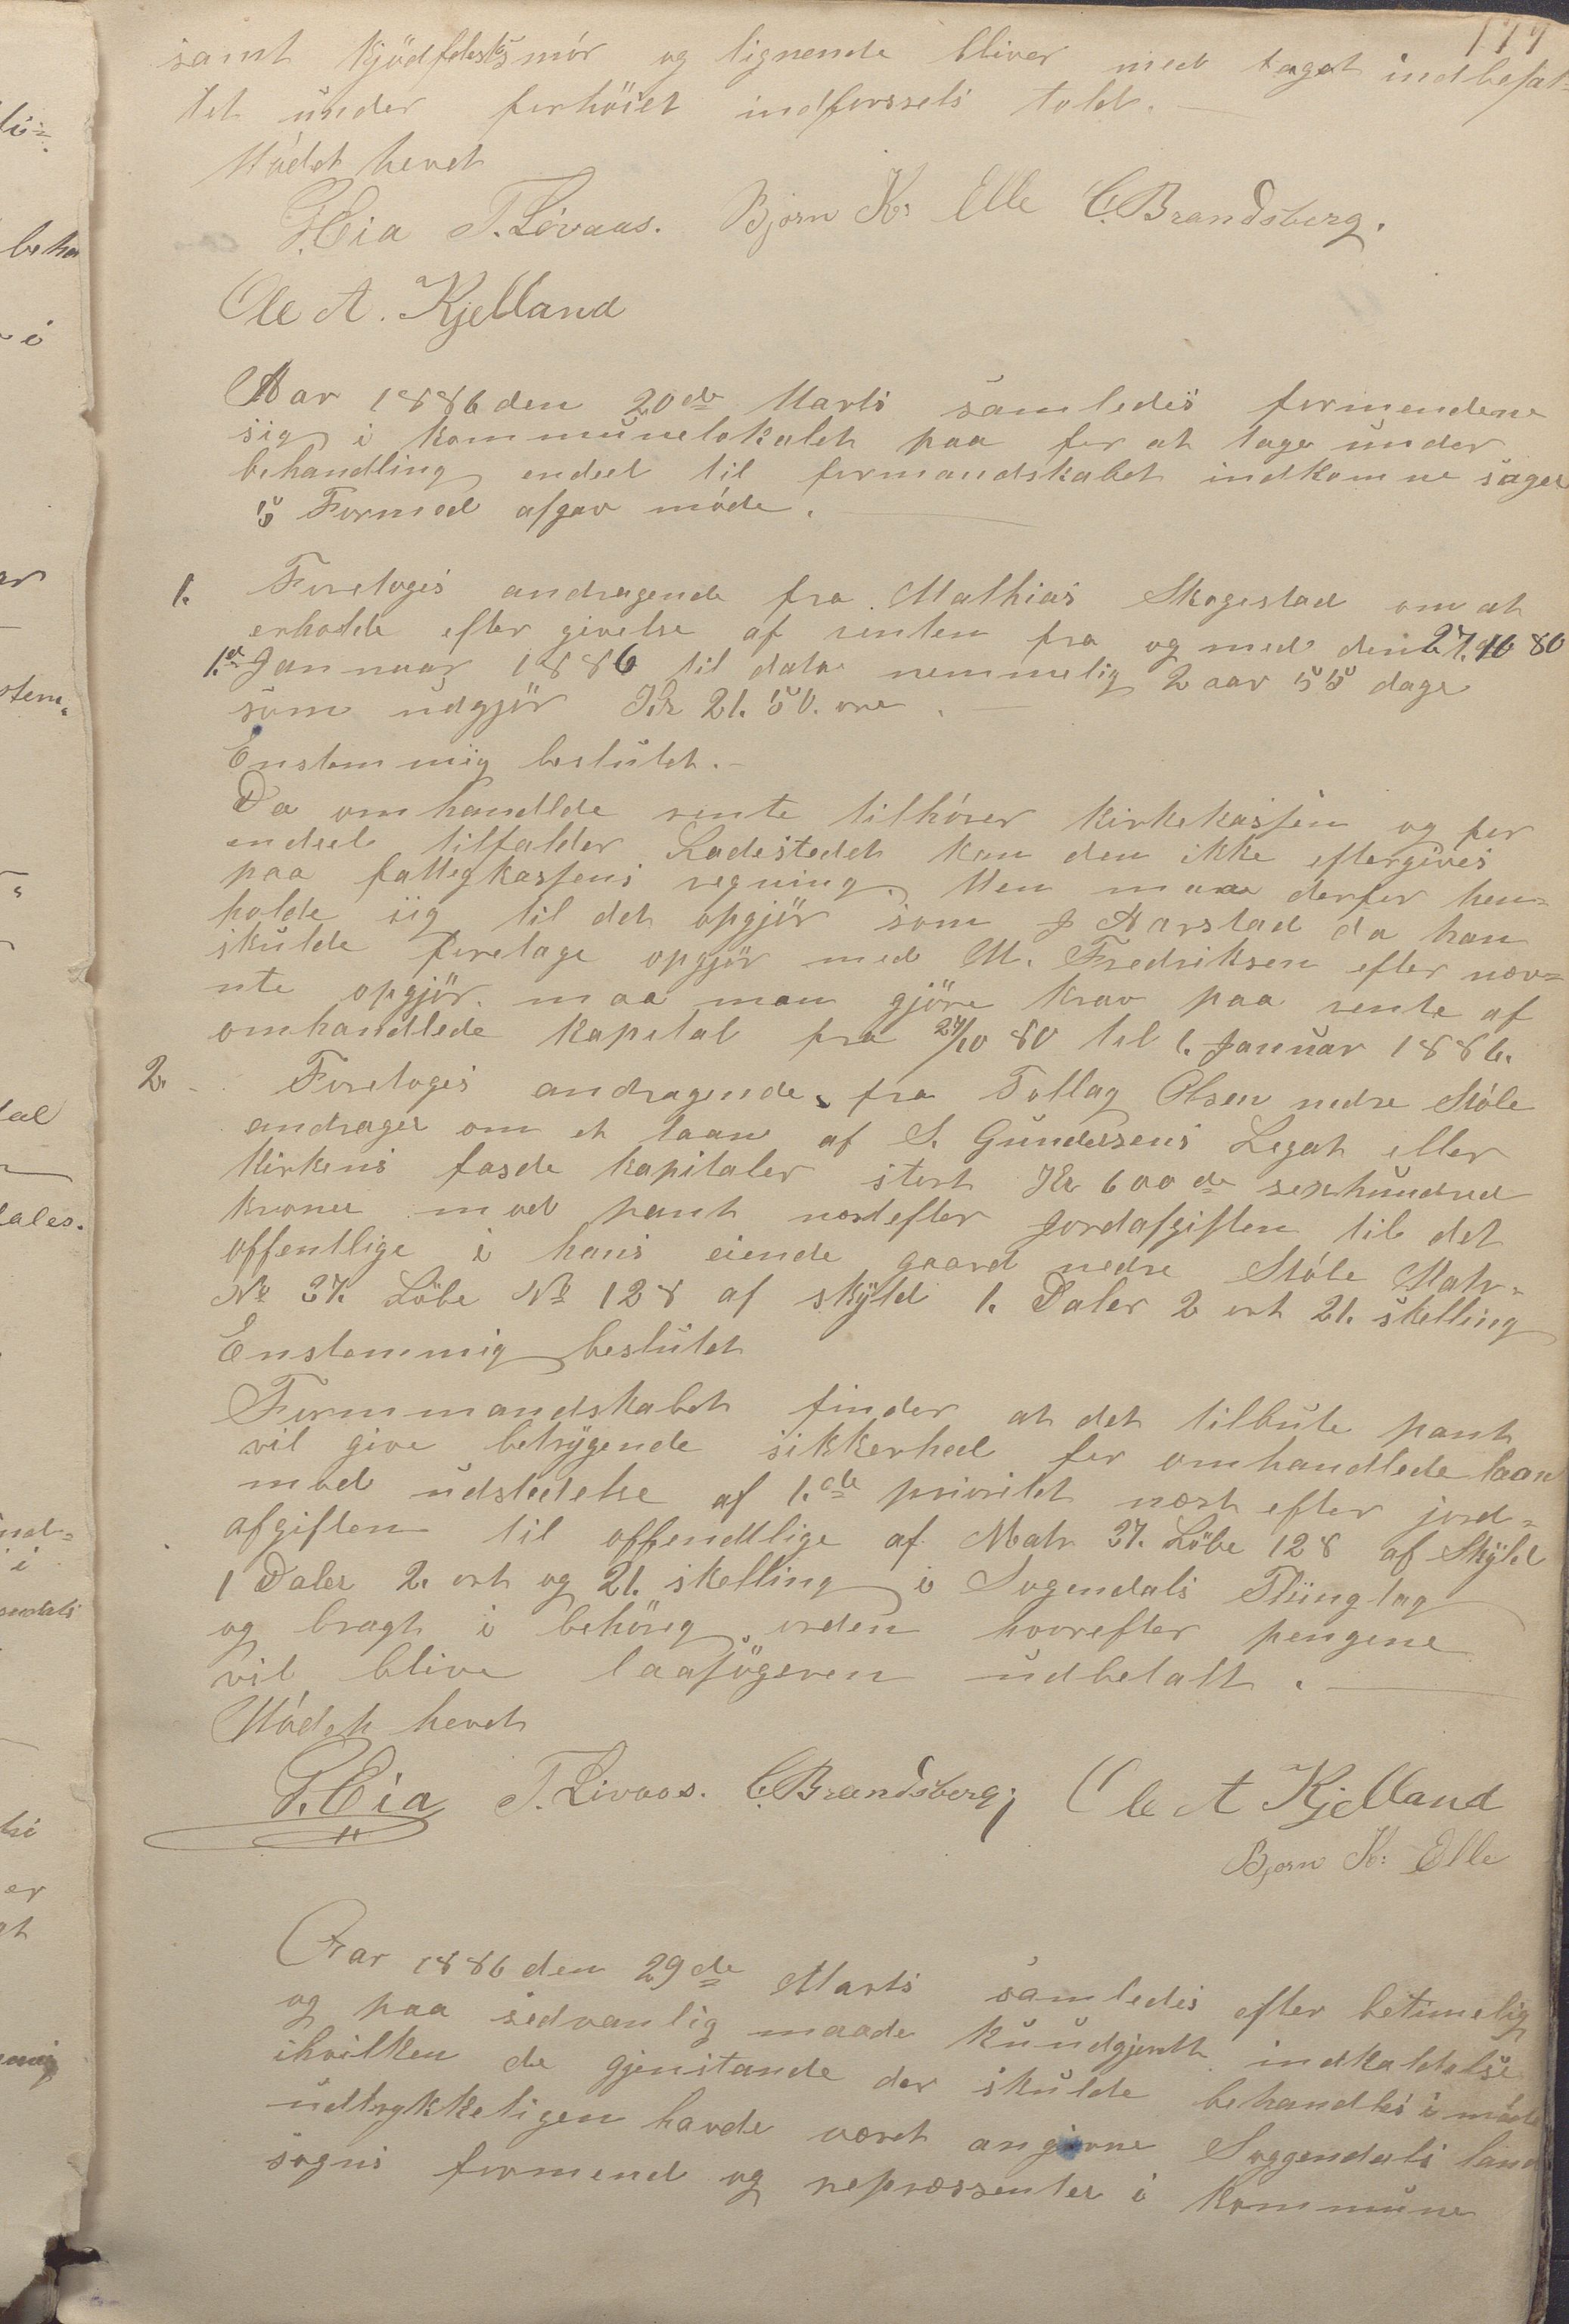 177
samt kjødfdesks smør og lignende bliver med taget indbefat-
tet under forhöiet indførsels told. —
Mødet hevet
T. Eia T. Livaas. Bjørn K: Elle C. Brandsberg.
Ole A. Kjelland
Aar 1886 den 20de Marts samledes formendene
sig i kommunelokalet paa for at tage under
behandling endeel til formandskabet indkomne sager
5 Formed afgav møde. —
1. Foretoges andragende fra Mathias Skogestad om at
erholde efter givelse af renten fra og med den 27.10 80
1.de Jannuar 1886 til dato nemmelig 2 aar 55 dage
som udgjör Kr 21.50. øre. —
Enstemmig beslutet. —
Da omhandlde rente tilhører kirkekassen og for
endeel tilfalder Ladestedet kan den ikke eftergives
paa fattigkassens regning. Men maa derfor hen-
holde sig til det opgjör som J Aarstad da han
skulde foretage opgjör med M. Fredriksen efter næv-
nte opgjör. maa man gjöre krav paa rente af
omhandlede kapital fra 27/10 80 til 1. Januar 1886.
2. Foretoges andragende fra Tollag Olsen nedre Støle
andrager om et laan af S. Gundersens Legat eller
kirkens faste kapitaler stort Kr 600de sexhundred
kroner mod pant næstefter jordafgiften til det
offentlige i hans eiende gaard nedre Støle Matr.
No 37. Löbe No 128 af skÿld 1. Daler 2 ort 21. skelling
Enstemmig beslutet
Formmandskabet finder at det tilbute pant
vil give betrÿgende sikkerhed for omhandlede laan
mod udstedelse af 1.de prioritet næst efter jord-
afgiften til offendtlige af Matr 37. Löbe 128 af Skÿld
1 Daler 2. ort og 21. skelling i Sogendals Thinglag
og bragt i behörig orden hvorefter pengene
vil blive laasögeren udbetalt. —
Mødet hevet
T. Eia T. Livaas. C. Brandsberg; Ole A Kjelland
Bjørn K: Elle
Aar 1886 den 29de Marts samledes efter betimelig
og paa sedvanlig maade kundgjordt indkaldelse
ihvilken de gjenstande der skulde behandles i møde
udtrykkeligen havde været angivne Soggendals land
sogns formend og repræssenter i kommune